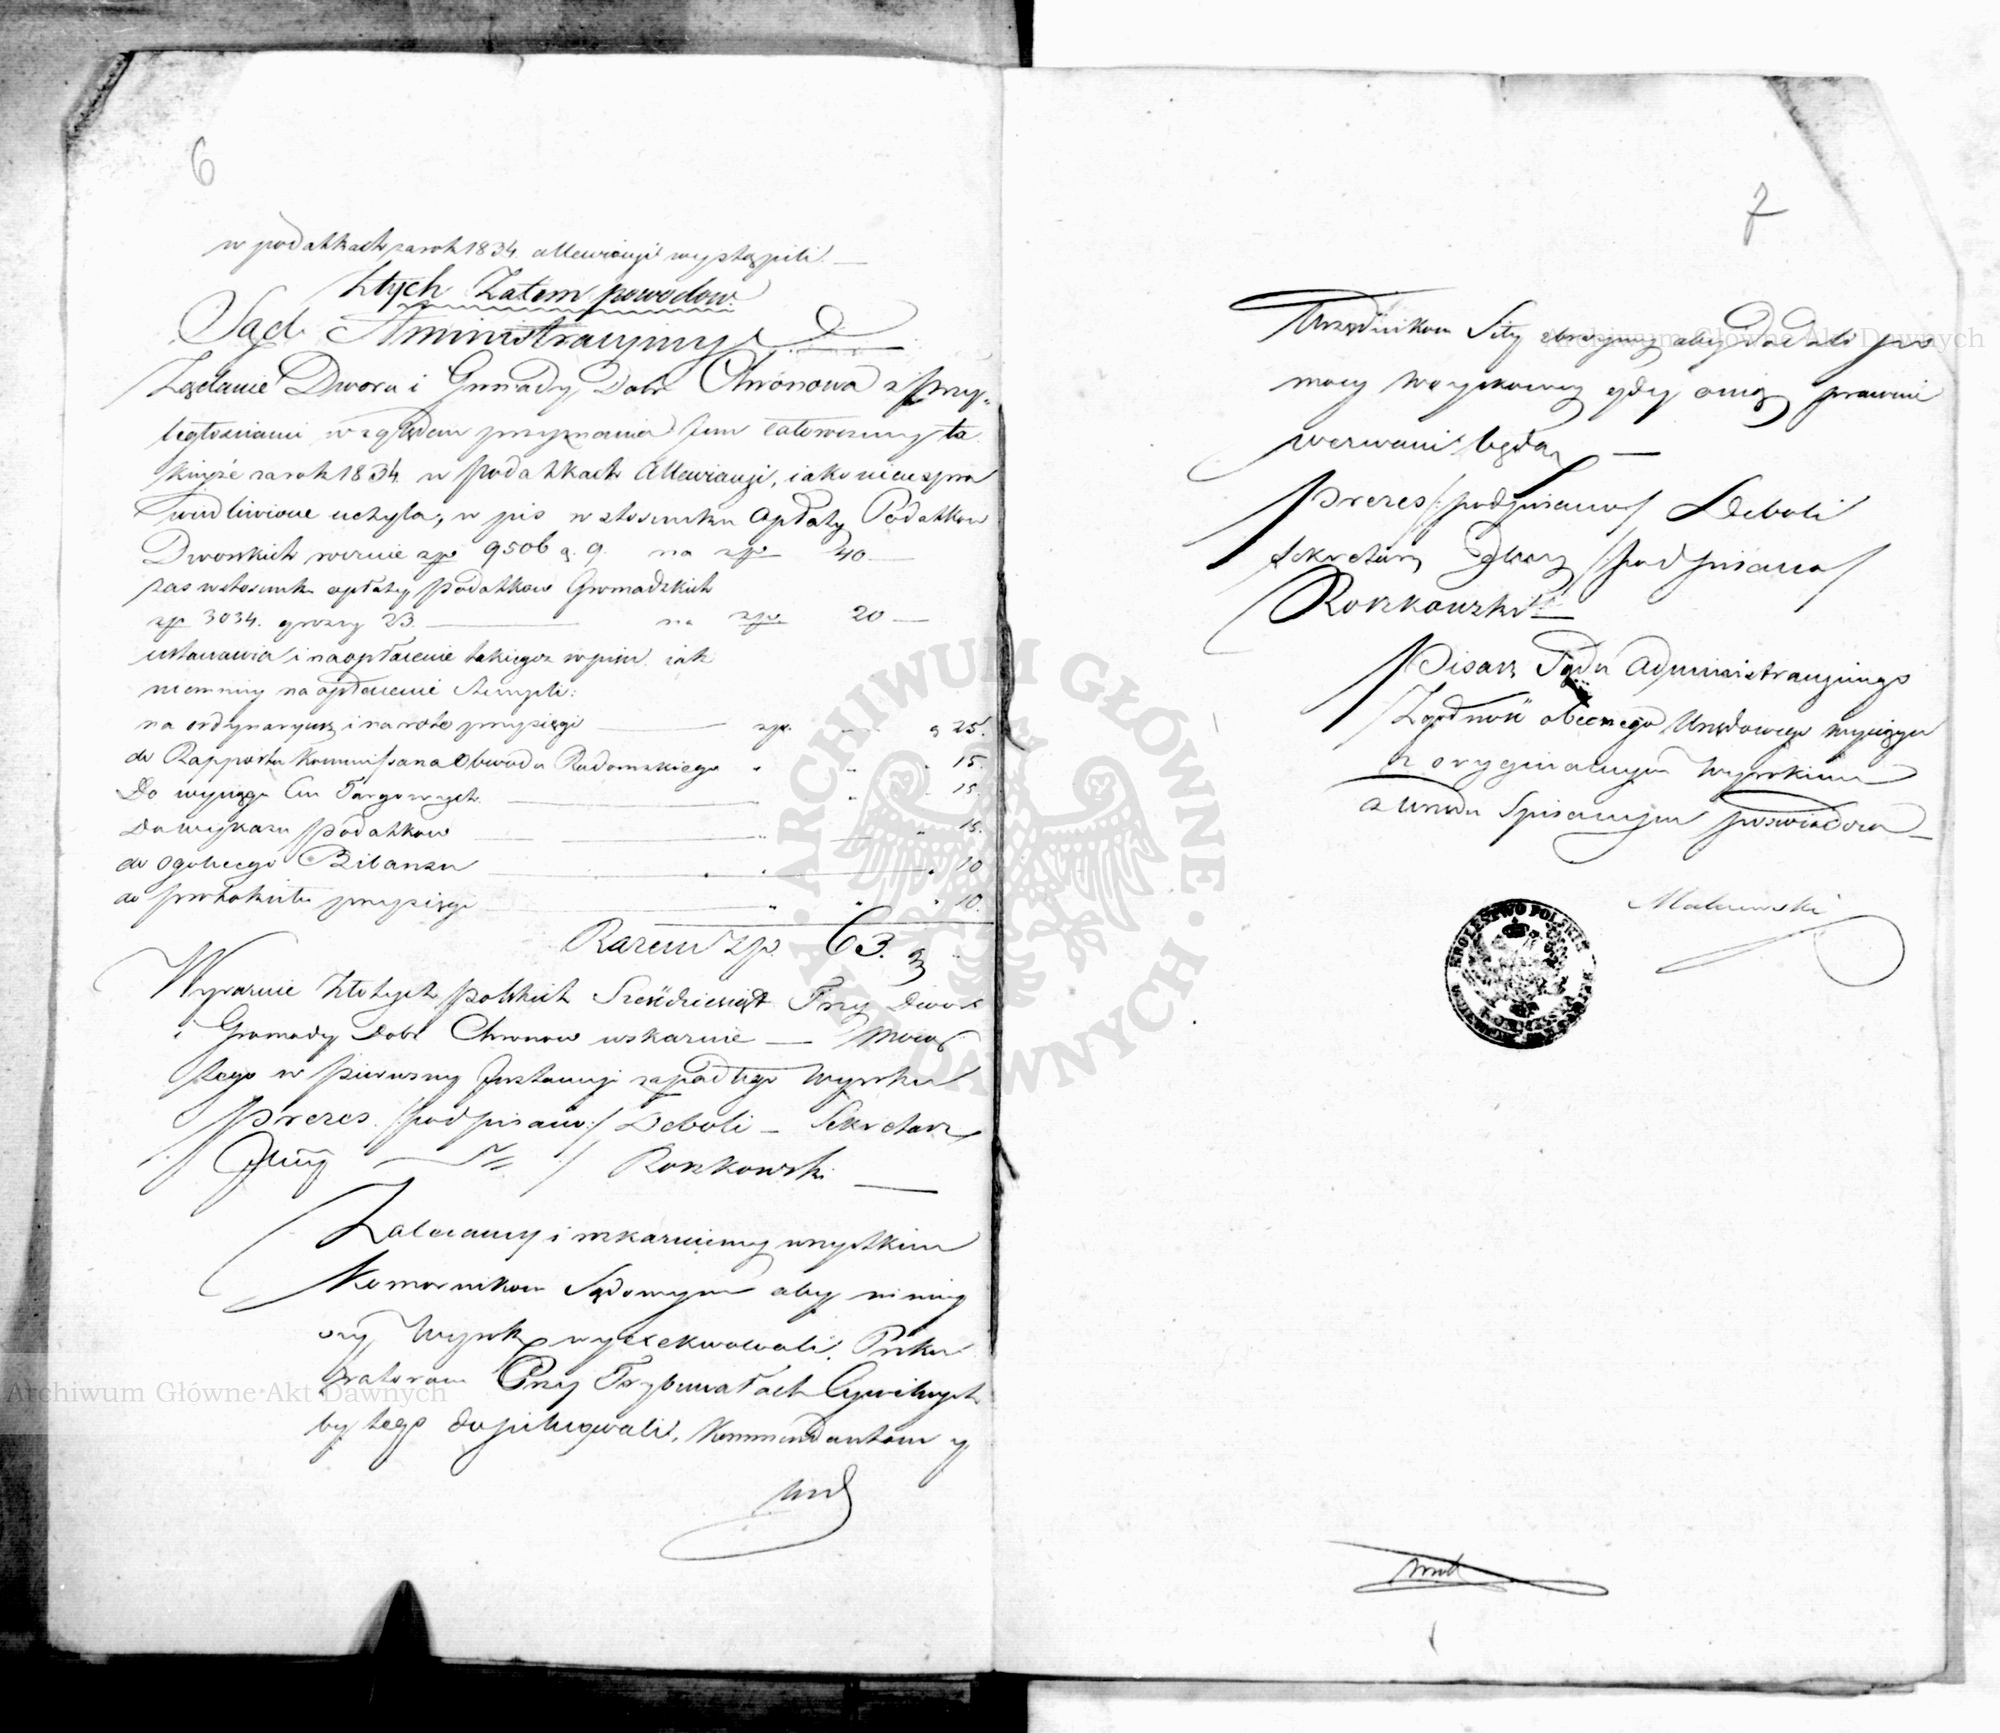 6
w podatkach za rok 1834. allewiacyi wystąpili. —
Z tych Zatem powodow.
Sąd Aministracyiny
Żądanie Dworu i Gromady Dobr Chronowa z Przy-
ległosciami względem przyznania Jem całoroczney ta
kieyże za rok 1834 w Podatkach Allewiacyi, iako nieuspra
wiedliwione uchyla, w pis w stosunku Opłaty Podatkow
Dworskich rocznie zp. 9506 g. 9. na zp. 40 —
zas w stosunku opłaty Podatkow Gromadzkich
zp 3034. groszy 23 — na zp. 20 —
ustanawia i na opłacenie takiegoż wpisu iak
niemniey na opłacenie Stempli:
na ordynaryusz i na rotę przysięgi — zp. „ g 25.
do Rapportu Kommissarza Obwodu Radomskiego „ „ „ 15.
Do wyciągu Cen Targowych — „ 15.
Do wykazu Podatkow — „ „ 15.
do ogolnego Bilansu — „ „ „ 10
do protokułu przysięgi — „ „ „ 10.
Razem zp. 63. g „
Wyraznie Złotych Polskich Sześćdziesiąt Trzy Dwor
i Gromady Dobr Chronow wskazuie — Mocą
tego w Pierwszey Jnstancyi zapadłego Wyroku
Prezes /:podpisano:/ Deboli – Sekretarz
/ Głłny — :/ Roszkowski —
Zalecamy i rozkazuiemy wszystkim
Komornikom Sądowym aby niniey
szy Wyrok wyexekwowali. Proku
ratorom Przy Trybunałach Cywilnych
by tego dopilnowali, Kommendantom y
Urzęd
7
Urzędnikom Siły zbroyney aby dodali po
mocy Woyskowey gdy onią prawnie
wezwani będą —
Prezes /:podpisano/ Deboli
Sekretarz Głłny /podpisano/
Roszkowski
Pisarz Sądu Administracyinego
Zgodność obecnego Urzędowego wyciągu
z oryginalnym Wyrokiem
z Urzędu Spisanym poswiadcza —
Malczewski
KROLESTWO POLSKIE
ARCHIWUM GŁÓWNE AKT DAWNYCH
Archiwum Główne Akt Dawnych
Archiwum Główne Akt Dawnych